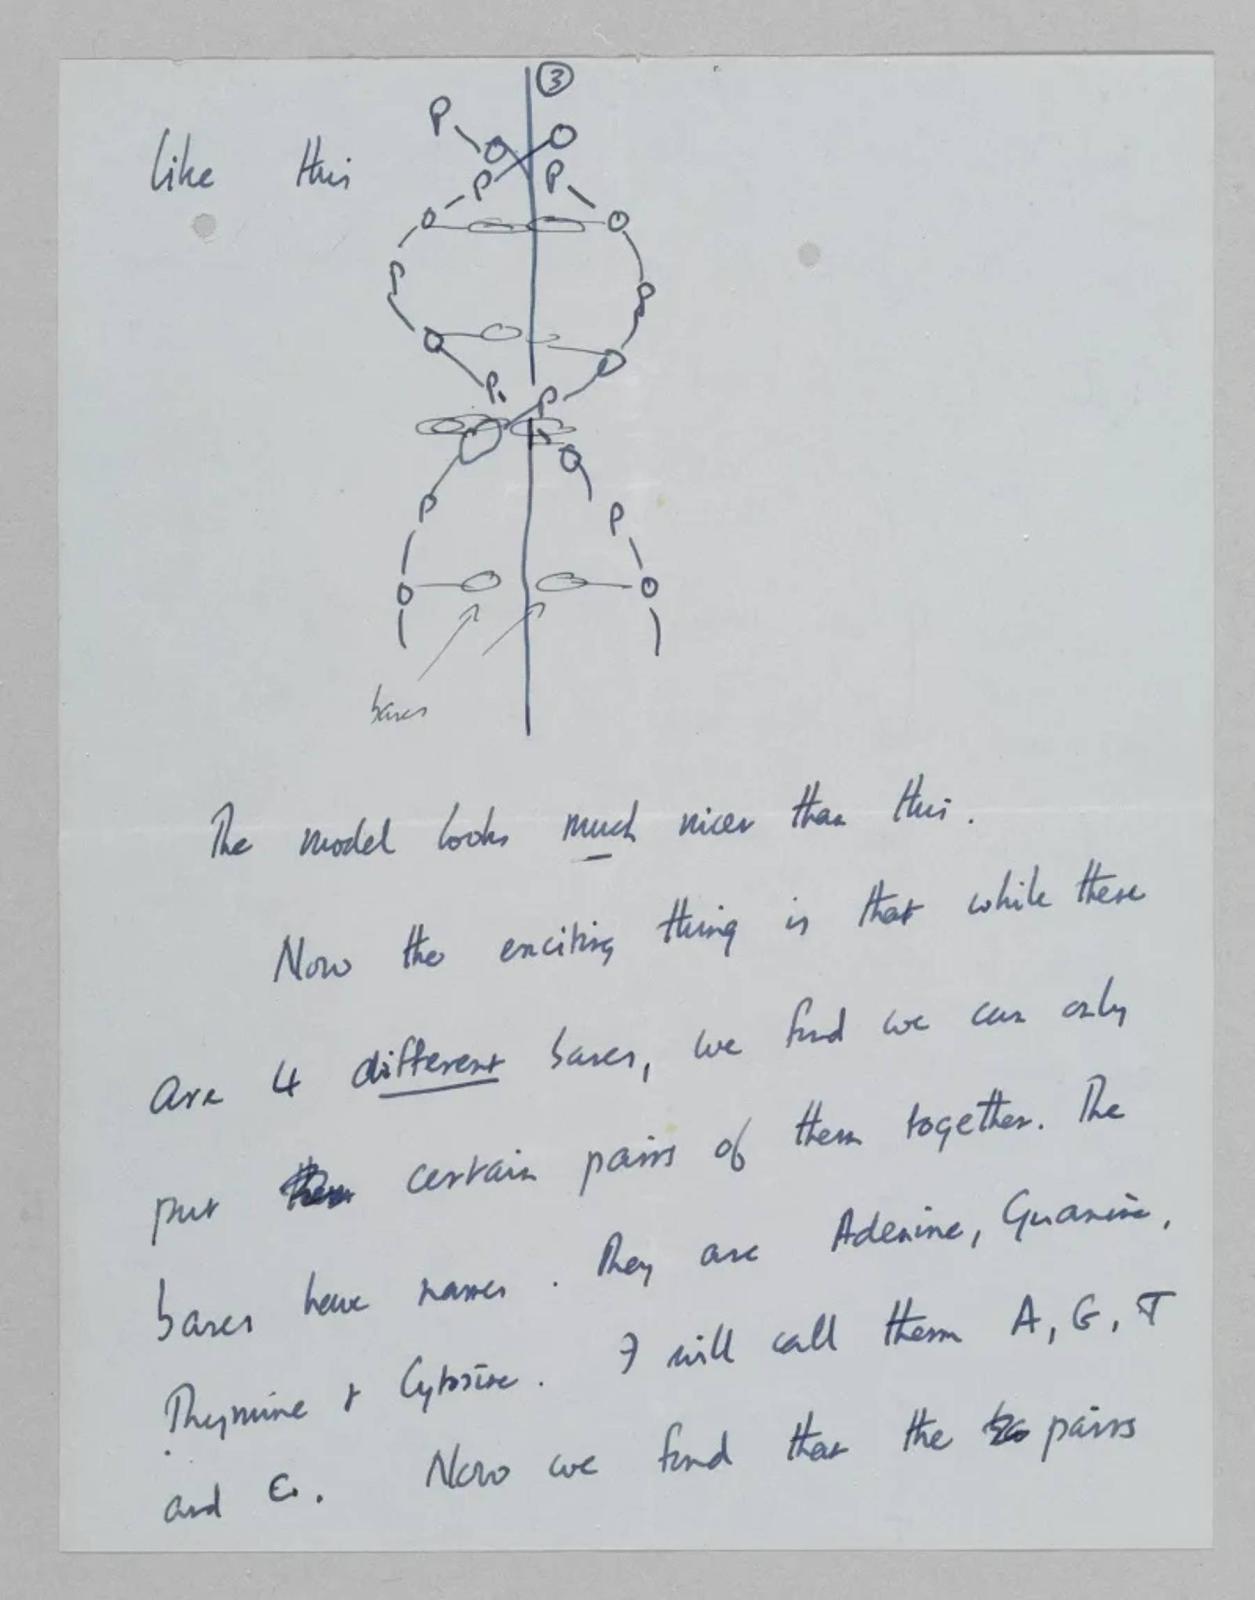 3
like this
P
O
O
P
P
O
O
P
O
O
O
P
P
O
O
P
P
O
O
bases
The model looks much nicer than this.
Now the exciting thing is that while these
are 4 different bases, we find we can only
put certain pairs of them together. The
bases have names. They are Adenine, Guanine,
Thymine & Cytosine. I will call them A, G, T
and C. Now we find that the pairs